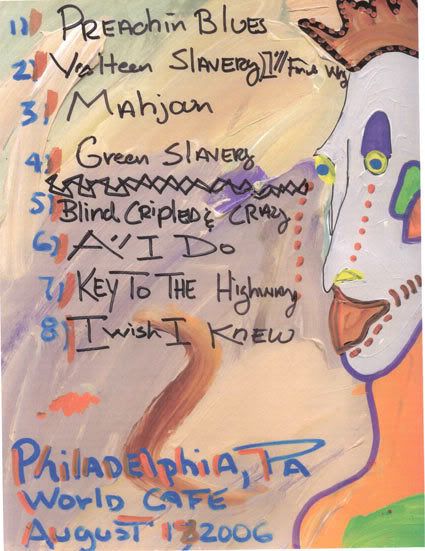 1) PREACHIN BLUES
2) SLAVERY
3) MAHJAN
4) GREEN SLAVERY
5) Blind CRIPLED & CRAZY
6) All I DO
7) KEY TO THE HIGHWAY
8) I wish I KNEW
PHiLADElphiA, PA
WORLD CAFE
AUGUST 2006